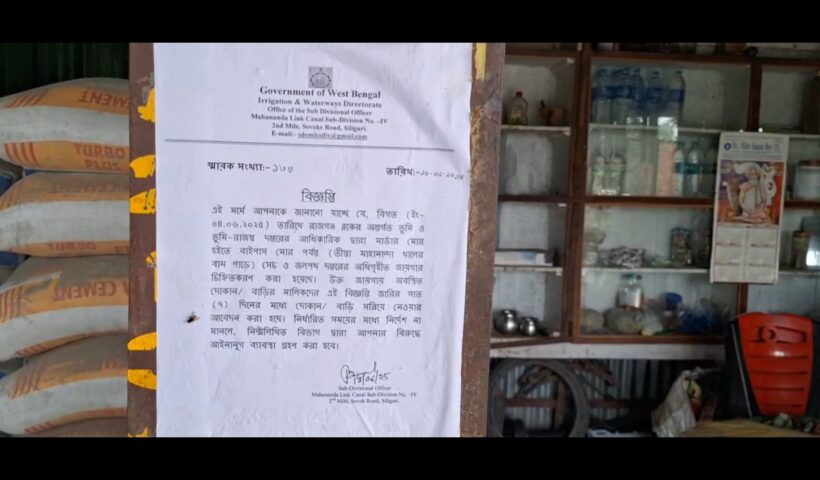 Government of West Bengal
Irrigation & Waterways Directorate
Office of the Sub Divisional Officer
Mahananda Link Canal Sub-Division No. -IV
2nd Mile, Sevoke Road, Siliguri.
E-mail:- sdomlcsdiv@gmail.com
স্মারক সংখ্যা:-
তারিখ:-
বিজ্ঞপ্তি
এই মর্মে আপনাকে জানানো যাচ্ছে যে, বিগত (ইং-
০৪.০৬.২০২৫) তারিখে রাজগঞ্জ ব্লকের অন্তর্গত ভূমি ও
ভূমি-রাজস্ব দপ্তরের আধিকারিক দ্বারা মার্ডার মোর
হইতে বাইপাস মোর পর্যন্ত (তীস্তা মাহানান্দা খালের
বাম পাড়ে) সেচ ও জলপথ দপ্তরের অধিগৃহীত জায়গার
চিহ্নিতকরণ করা হয়েছে। উক্ত জায়গায় অবস্থিত
দোকান/ বাড়ির মালিকদের এই বিজ্ঞপ্তি জারির সাত
(৭) দিনের মধ্যে দোকান/ বাড়ি সরিয়ে নেওয়ার
আবেদন করা হছে। নির্ধারিত সময়ের মধ্যে নির্দেশ না
মানলে, নিম্নলিখিত বিভাগ দ্বারা আপনার বিরুদ্ধে
আইনানুগ ব্যাবস্থা গ্রহণ করা হবে।
Sub-Divisional Officer
Mahananda Link Canal Sub-Division No. -IV
2nd Mile, Sevok Road, Siliguri.
CEMENT
TURBO
PLUS
CEMENT
TURBO